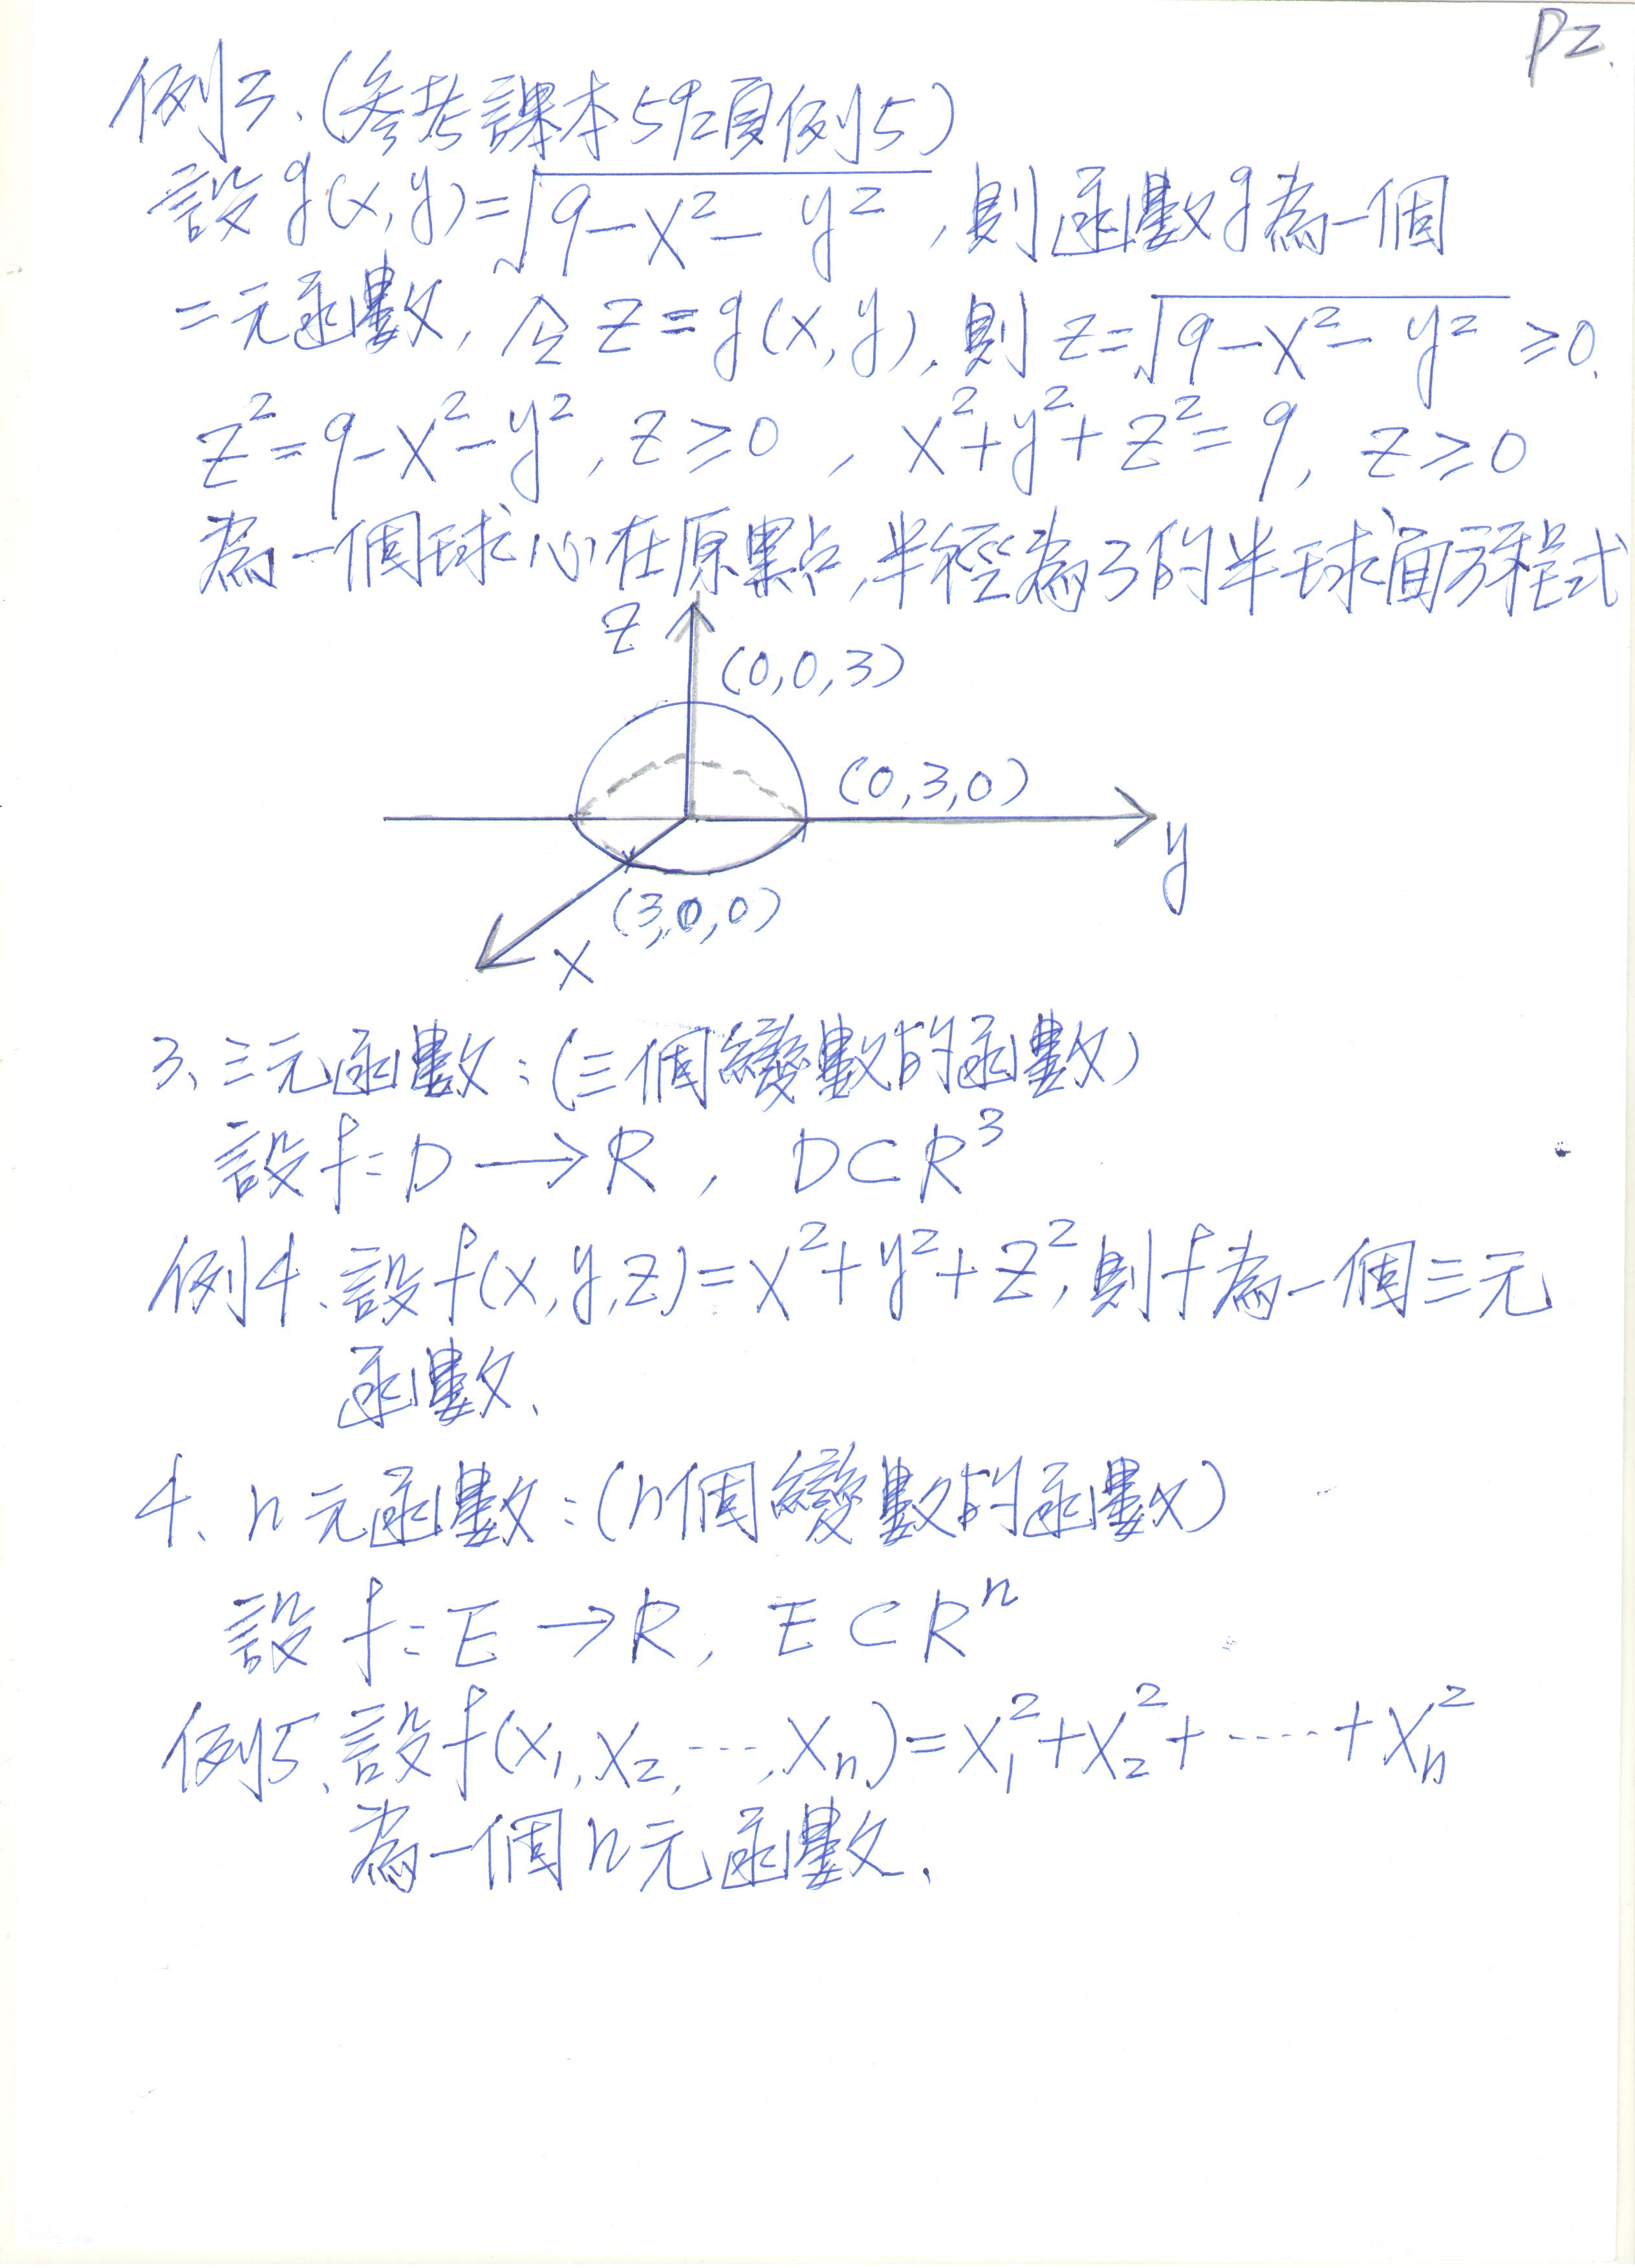 P2.
例3、(參考課本592頁例5)
設g(x,y)=√(9-x²-y²),則函數g為一個
二元函數,令z=g(x,y),則z=√(9-x²-y²) ≥0.
z²=9-x²-y², z≥0 , x²+y²+z²=9, z≥0
為一個球心在原點,半徑為3的半球面方程式
z
(0,0,3)
(0,3,0)
y
(3,0,0)
x
3、三元函數:(三個變數的函數)
設f:D→R, D⊂R³
例4、設f(x,y,z)=x²+y²+z²,則f為一個三元
函數、
4、n元函數:(n個變數的函數)
設f:E→R, E⊂Rⁿ
例5、設f(x₁,x₂,…,xₙ)=x₁²+x₂²+……+xₙ²
為一個n元函數、